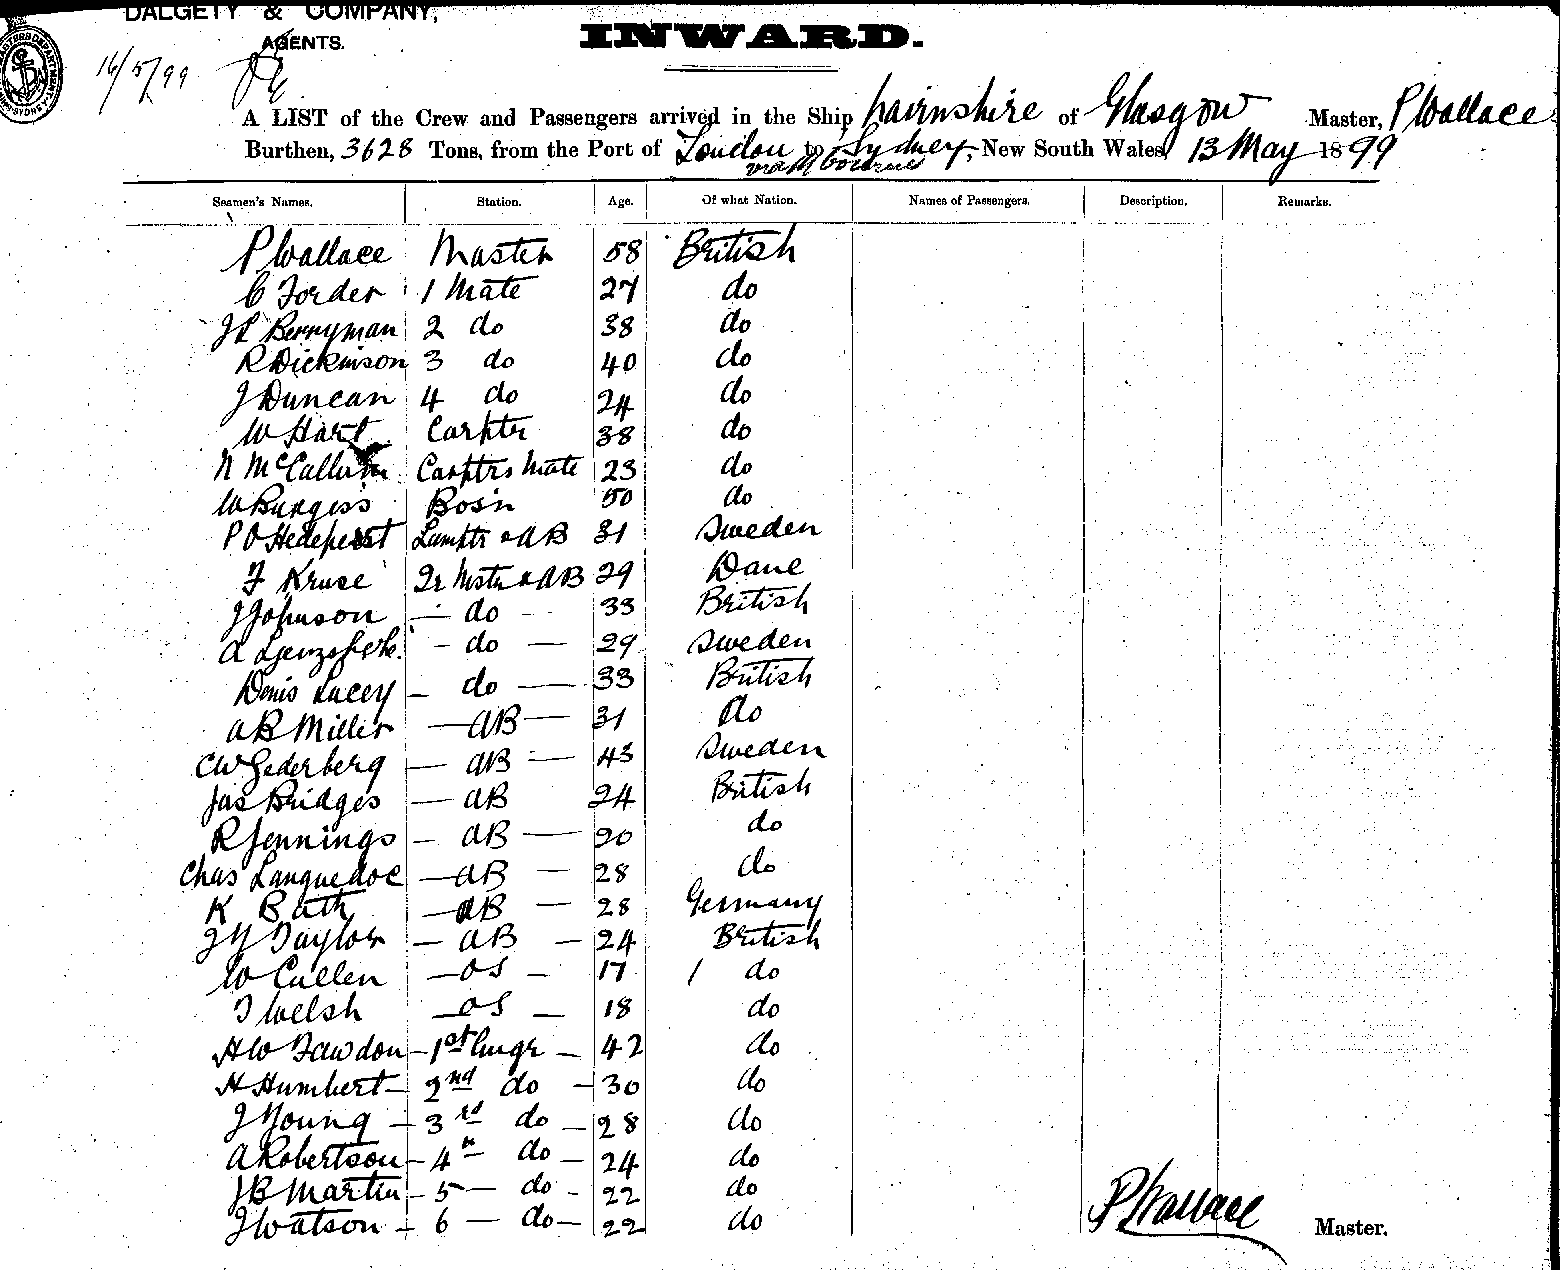 DALGETY & COMPANY,
AGENTS.
INWARD.
16/5/99
A LIST of the Crew and Passengers arrived in the Ship Nairnshire of Glasgow Master, P Wallace
Burthen, 3628 Tons, from the Port of London to Sydney, New South Wales, 13 May 1899
via Melbourne
Seamen's Names. Station. Age. Of what Nation. Names of Passengers. Description. Remarks.
P Wallace Master 58 British
C Forder 1 Mate 27 do
J L Berryman 2 do 38 do
R Dickinson 3 do 40 do
J Duncan 4 do 24 do
W Hart Carptr 38 do
N McCallum Carptrs Mate 23 do
W Burgess Bosn 50 do
P O Lamptr & AB 31 Sweden
F Kruse Qr Mstr & AB 29 Dane
J Johnson — do — 33 British
A - do — 29 Sweden
Denis Lacey — do — 33 British
A B Miller — AB — 31 do
C W Gederberg — AB — 43 Sweden
Jas Bridges — AB 24 British
R Jennings — AB — 20 do
Chas Languedoc — AB — 28 do
K Bath — AB — 28 Germany
J Y Taylor — AB — 24 British
W Cullen — OS — 17 / do
T Welsh — OS — 18 do
H W Fawdon — 1st Engr — 42 do
H Humbert — 2nd do — 30 do
J Young — 3rd do — 28 do
A Robertson — 4th do — 24 do
J B Martin — 5 — do - 22 do
J Watson — 6 — do — 22 do
P Wallace Master.